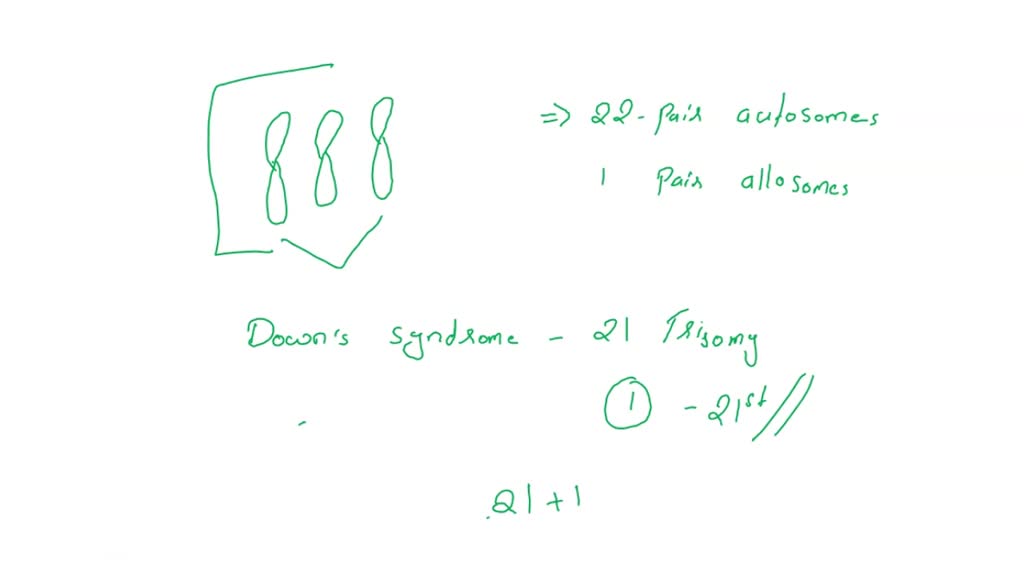 => 22 - pair autosomes
1 pair allosomes
Down's syndrome - 21 Trisomy
1 - 21st //
21 + 1